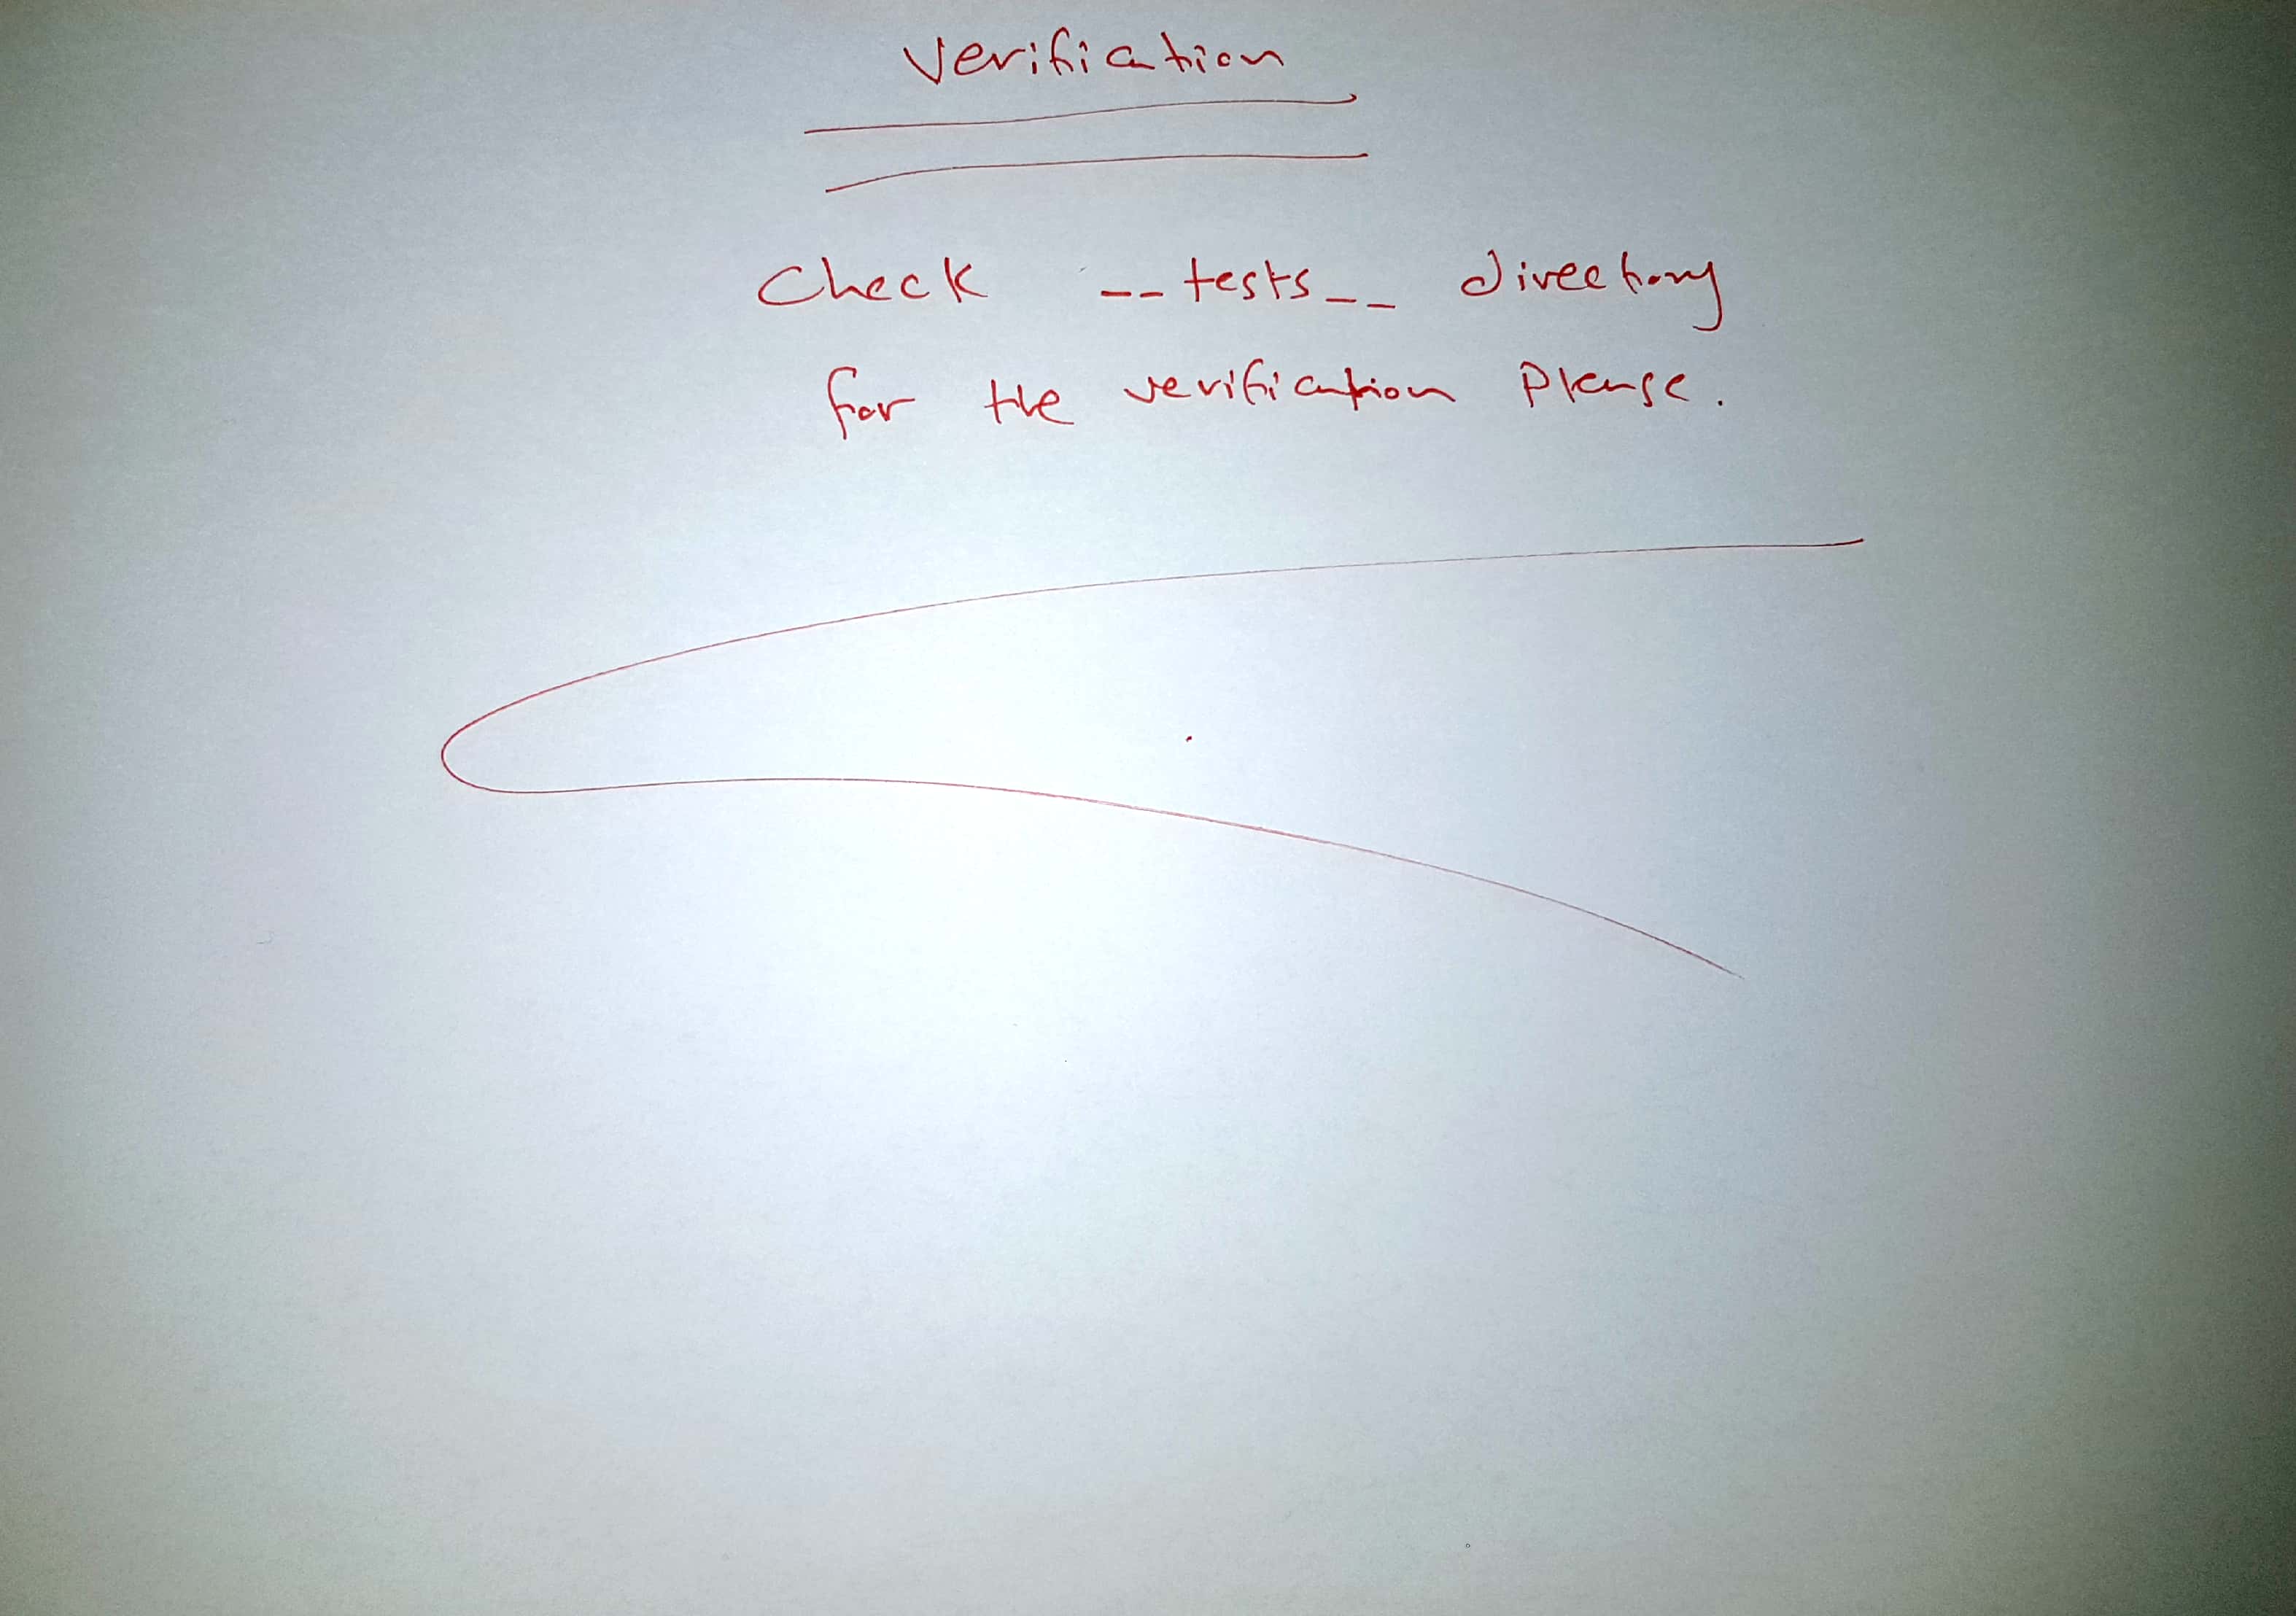 Verification
Check __tests__ directory
for the verification please.